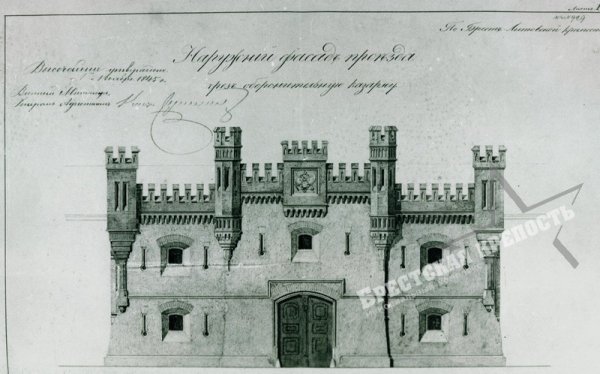 Листъ 1
По Брестъ Литовской крѣпости
Наружный фасадъ проѣзда
чрезъ оборонительную казарму
Высочайше утвержденъ
1845 г.
Военный Министръ
Генералъ Адъютантъ Князь
БРЕСТСКАЯ КРЕПОСТЬ